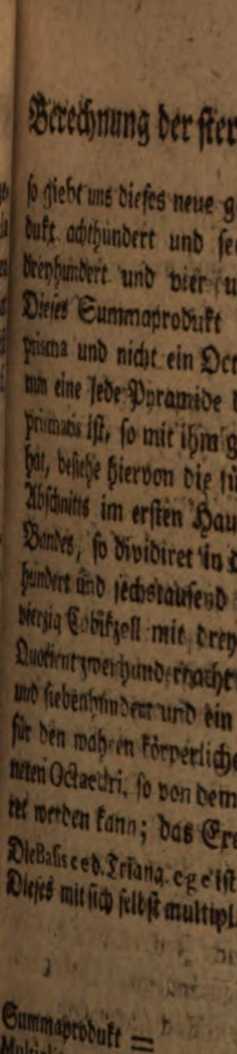 Berechnung der ster
so giebt uns dieses neue g
dukt achthundert und se
dreyhundert und vier u
Dieses Summaprodukt
prisma und nicht ein Oct
nun eine jede Pyramide
prismatis ist, so mit ihm g
hat, besiehe hiervon die
Abschnitts im ersten Hau
Bandes, so dividiret in
hundert und sechstausend
vierzig Cubikzoll mit drey
Quotient zweyhundertacht
und siebenhundert und ein
für den wahren körperliche
neten Octaedri, so von dem
ret werden kann; das Ere
Die Basis c e d. Triang. e g e ist
Dieses mit sich selbst multipl.
Summaprodukt =